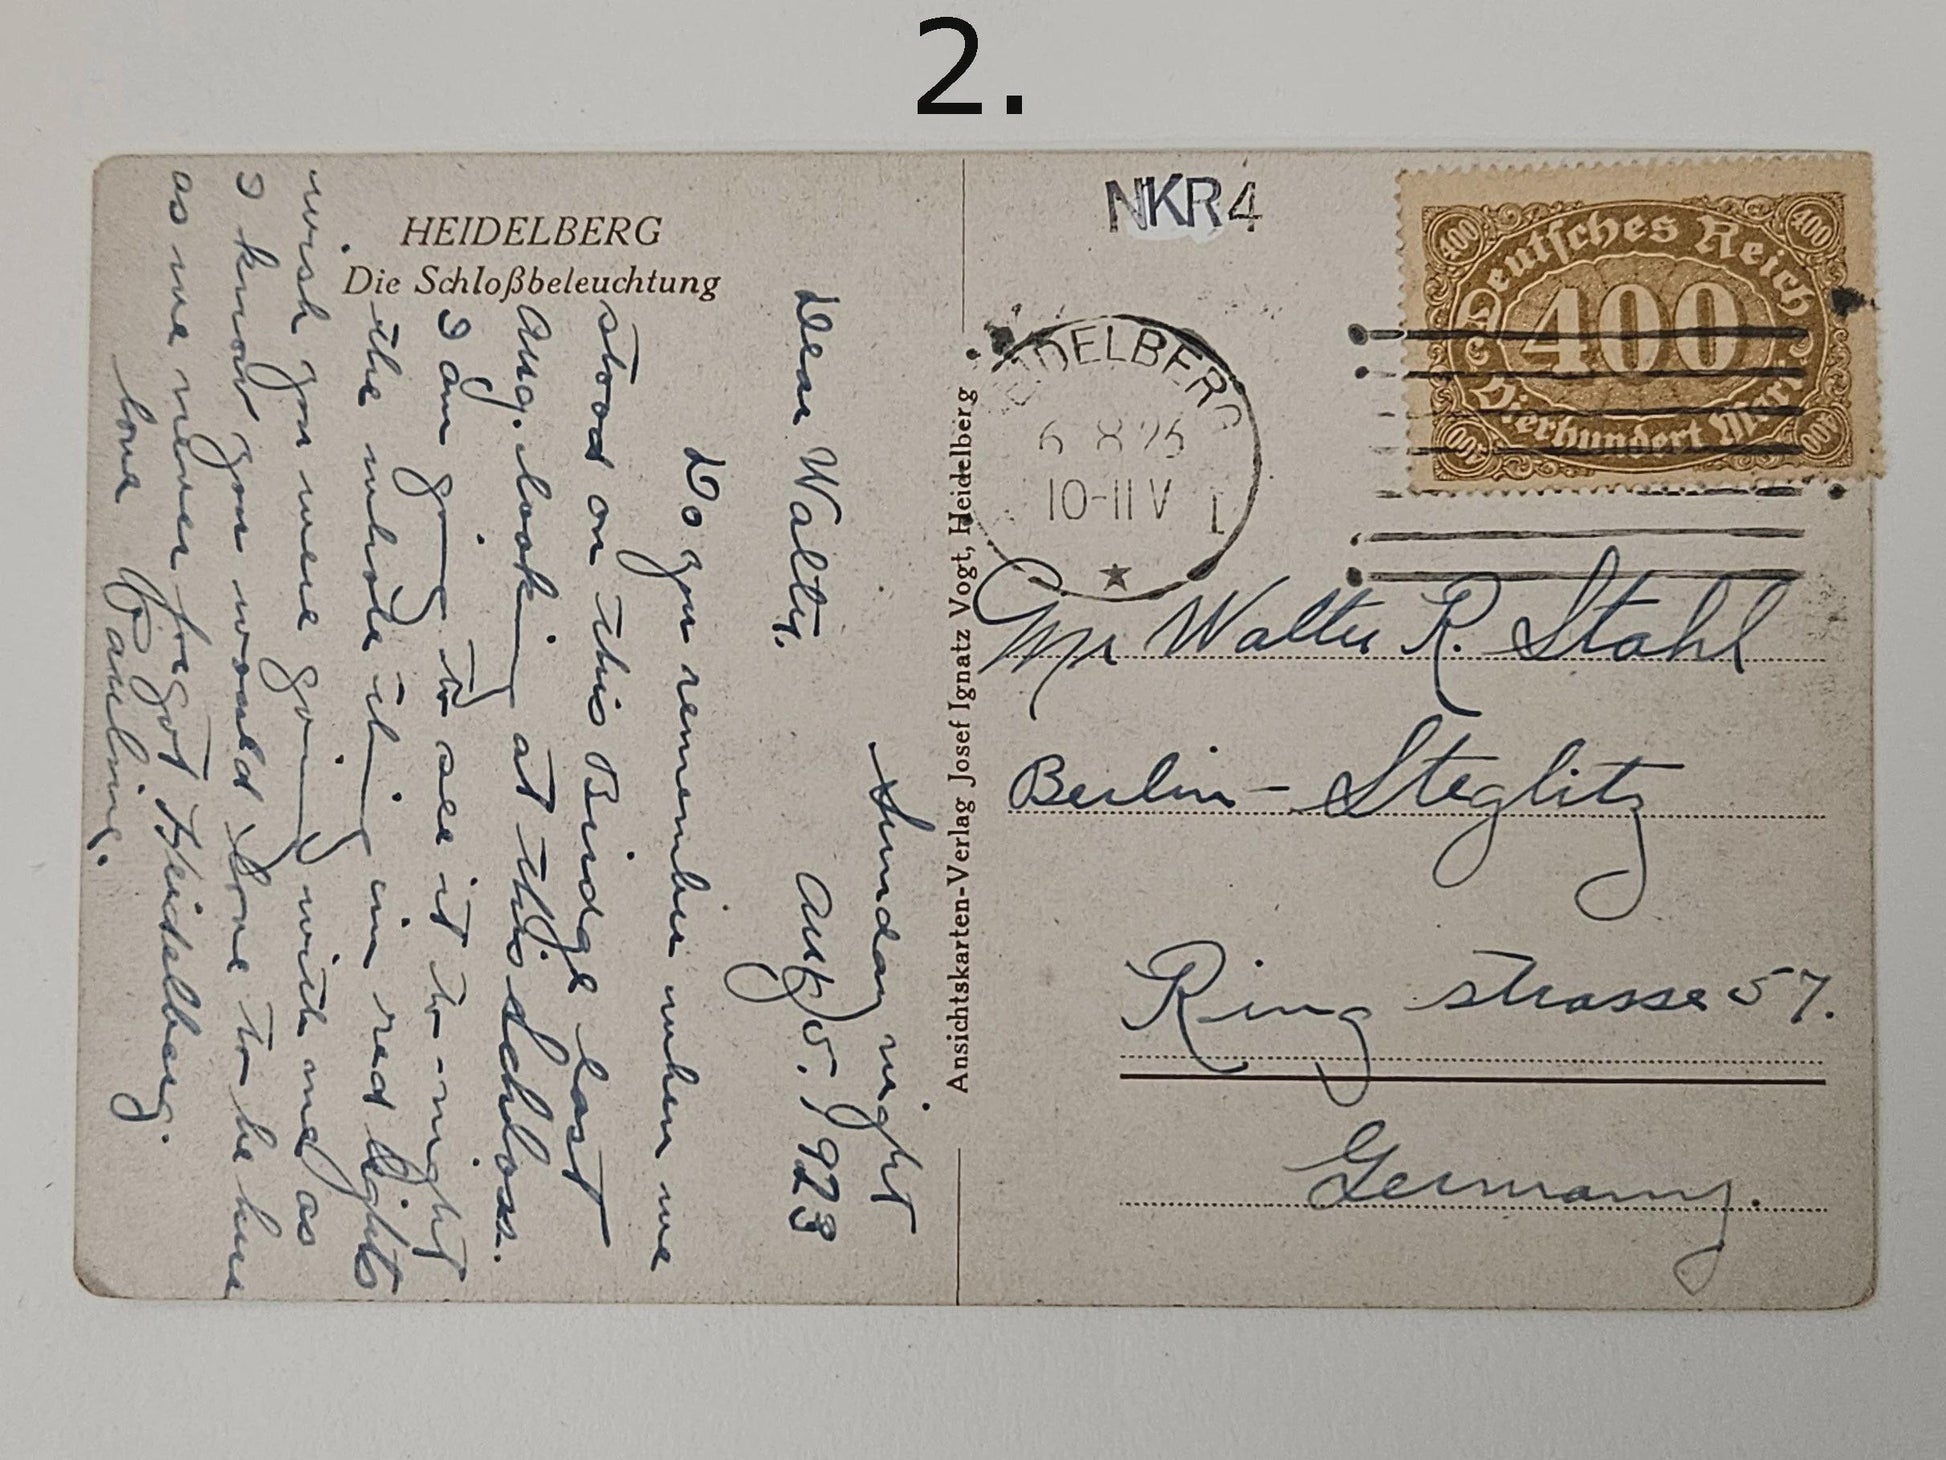 2.
HEIDELBERG
Die Schloßbeleuchtung
Sunday night
Aug 5. 1923
Dear Walter,
Do you remember when we
stood on this Bridge last
Aug. looking at this schloss.
I am going to see it to-night
the whole thing in red lights
wish you were going with me as
I know you would love to be here
as we never forgot Heidelberg.
love Pauline.
Ansichtskarten-Verlag Josef Ignatz Vogt, Heidelberg
NKR4
HEIDELBERG
6 8 23
10-11 V
Deutsches Reich
400
400
400
400
400
Vierhundert Mark
Mr Walter R. Stahl
Berlin - Steglitz
Ring strasse 57.
Germany.